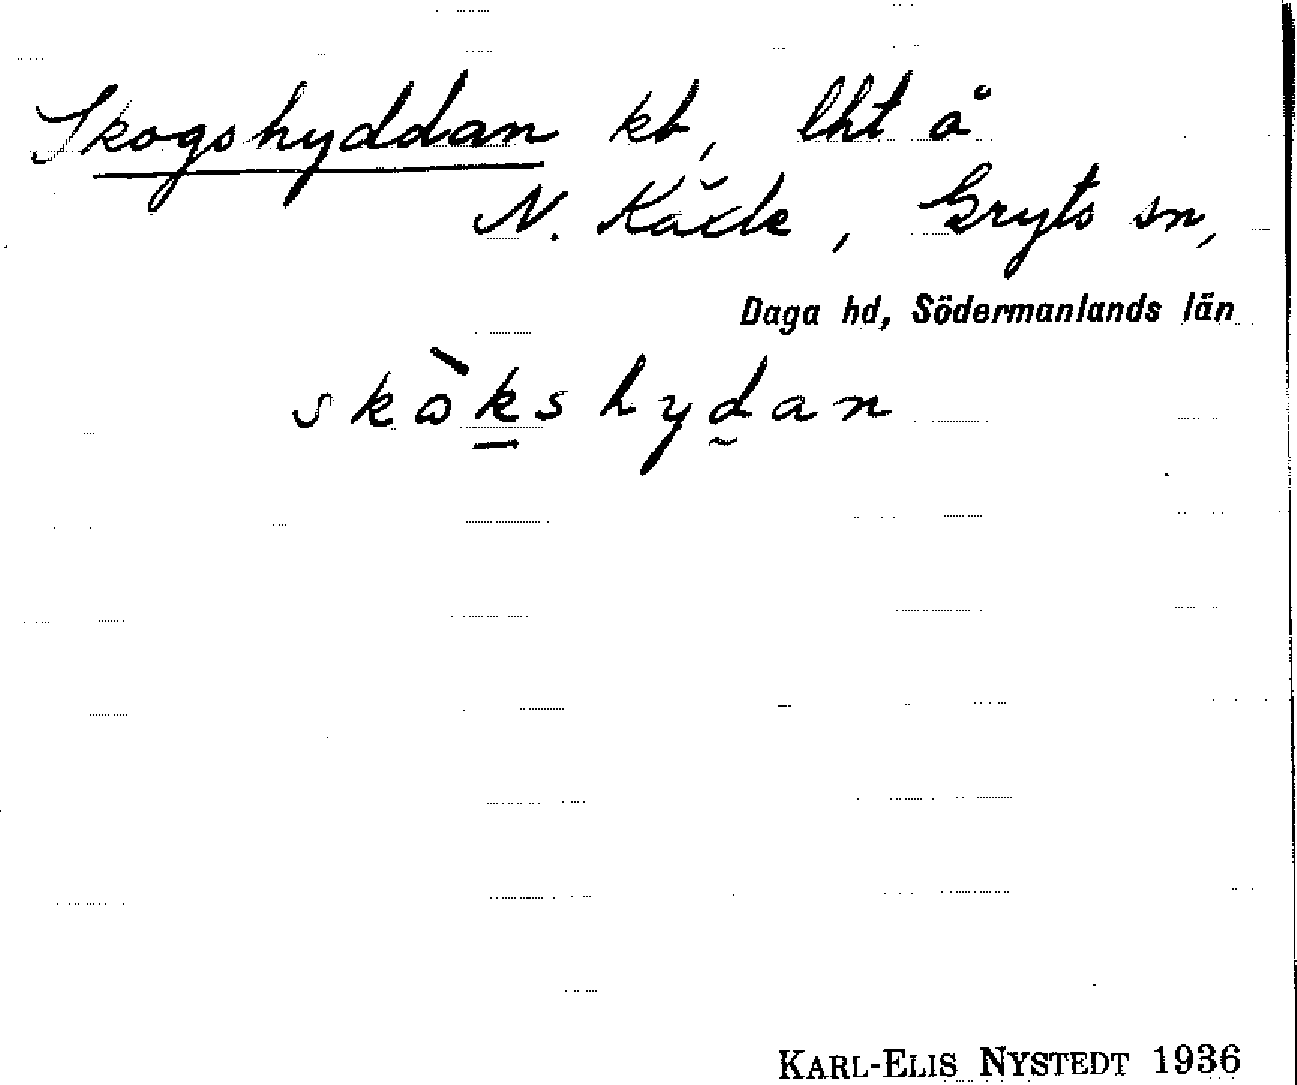 Skogshyddan kt, lht å
N. Kåcle, Gryts sn,
Daga hd, Södermanlands län
skòkshydan
KARL-ELIS NYSTEDT 1936